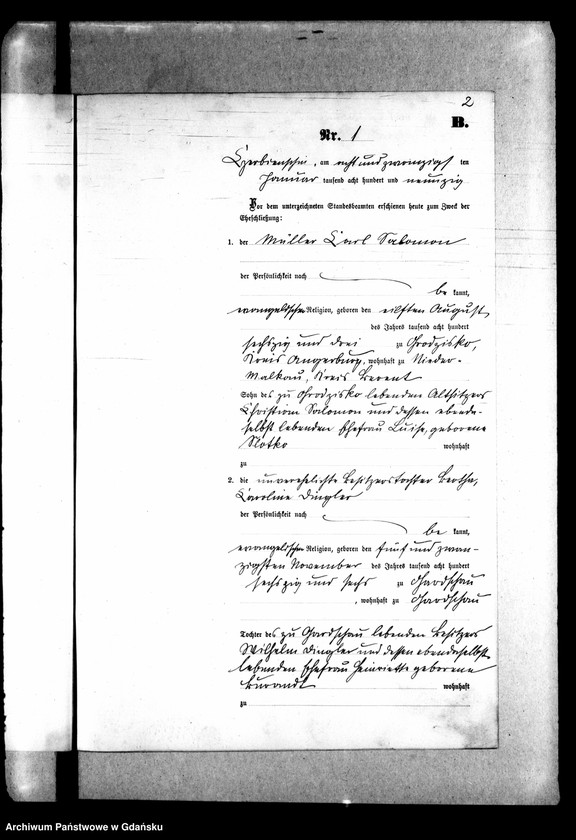 2
B.
Nr. 1
Czerbienschin, am acht und zwanzigsten
Januar tausend acht hundert und neunzig
Vor dem unterzeichneten Standesbeamten erschienen heute zum Zweck der
Eheschließung:
1. der Müller Carl Salomon
der Persönlichkeit nach
be kannt,
evangelischer Religion, geboren den eilften August
des Jahres tausend acht hundert
sechszig und drei zu Grodzisko,
Kreis Angerburg, wohnhaft zu Nieder-
Malkau, Kreis Berent
Sohn des zu Grodzisko lebenden Altsitzers
Christian Salomon und dessen ebenda-
selbst lebenden Ehefrau Luise, geborene
Slotko wohnhaft
zu
2. die unverehelichte Besitzerstochter Bertha,
Caroline Dingler
der Persönlichkeit nach
be kannt,
evangelischer Religion, geboren den fünf und zwan-
zigsten November des Jahres tausend acht hundert
sechszig und sechs zu Gardschau
, wohnhaft zu Gardschau
Tochter des zu Gardschau lebenden Besitzers
Wilhelm Dingler und dessen ebendaselbst
lebenden Ehefrau Heinriette geborene
Kurandt wohnhaft
zu
Archiwum Państwowe w Gdańsku